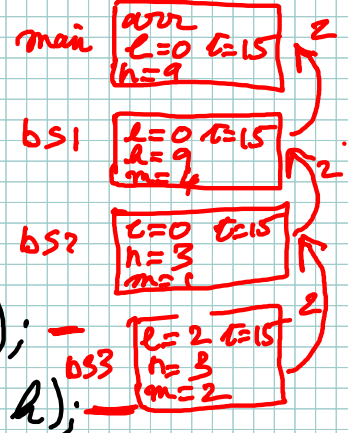 main
arr
l=0 t=15
h=9
2
bS1
l=0 t=15
h=9
m=4
2
bS2
l=0 t=15
h=3
m=1
2
);
bS3
l=2 t=15
h=3
m=2
h);